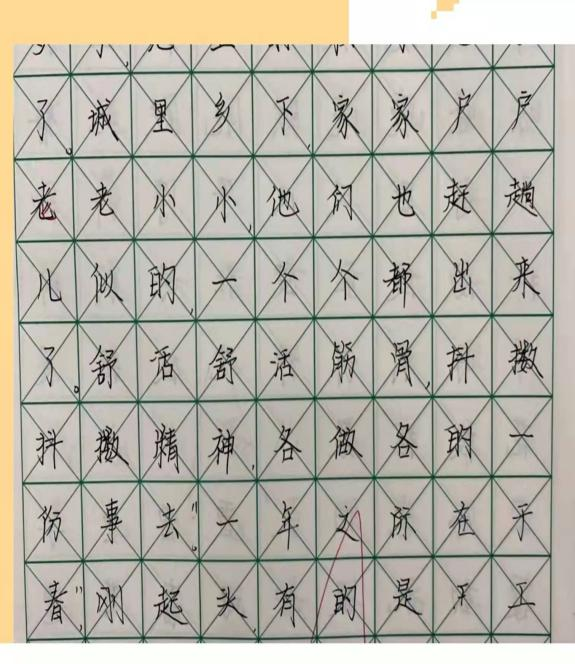 了。城里乡下,家家户户
老老小小,他们也赶趟
儿似的,一个个都出来
了。舒活舒活筋骨,抖擞
抖擞精神,各做各的一
份事去"。一年之所在于
春",刚起头,有的是不工